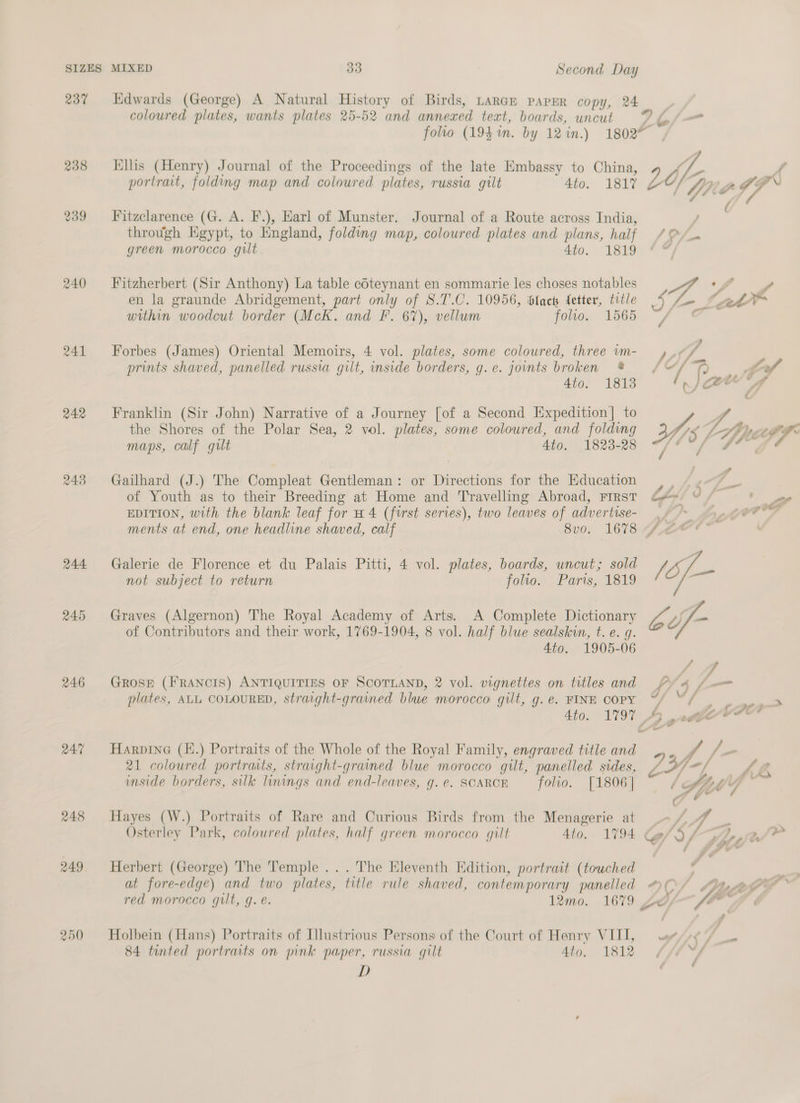 SIZES MIXED 33 Second Day
237 Edwards (George) A Natural History of Birds, LARGE PAPER copy, 24
coloured plates, wants plates 25-52 and annexed text, boards, uncut
folio (19½ in. by 12 in.) 1802
238 Ellis (Henry) Journal of the Proceedings of the late Embassy to China,
portrait, folding map and coloured plates, russia gilt 4to. 1817
239 Fitzclarence (G. A. F.), Earl of Munster. Journal of a Route across India,
through Egypt, to England, folding map, coloured plates and plans, half
green morocco gilt 4to. 1819
240 Fitzherbert (Sir Anthony) La table cōteynant en sommarie les choses notables
en la graunde Abridgement, part only of S.T.C. 10956, black letter, title
within woodcut border (McK. and F. 67), vellum folio. 1565
241 Forbes (James) Oriental Memoirs, 4 vol. plates, some coloured, three im-
prints shaved, panelled russia gilt, inside borders, g. e. joints broken *
4to. 1813
242 Franklin (Sir John) Narrative of a Journey [of a Second Expedition] to
the Shores of the Polar Sea, 2 vol. plates, some coloured, and folding
maps, calf gilt 4to. 1823-28
243 Gailhard (J.) The Compleat Gentleman: or Directions for the Education
of Youth as to their Breeding at Home and Travelling Abroad, FIRST
EDITION, with the blank leaf for H 4 (first series), two leaves of advertise-
ments at end, one headline shaved, calf 8vo. 1678
244 Galerie de Florence et du Palais Pitti, 4 vol. plates, boards, uncut; sold
not subject to return folio. Paris, 1819
245 Graves (Algernon) The Royal Academy of Arts. A Complete Dictionary
of Contributors and their work, 1769-1904, 8 vol. half blue sealskin, t. e. g.
4to. 1905-06
246 GROSE (FRANCIS) ANTIQUITIES OF SCOTLAND, 2 vol. vignettes on titles and
plates, ALL COLOURED, straight-grained blue morocco gilt, g. e. FINE COPY
4to. 1797
247 HARDING (E.) Portraits of the Whole of the Royal Family, engraved title and
21 coloured portraits, straight-grained blue morocco gilt, panelled sides,
inside borders, silk linings and end-leaves, g. e. SCARCE folio. [1806]
248 Hayes (W.) Portraits of Rare and Curious Birds from the Menagerie at
Osterley Park, coloured plates, half green morocco gilt 4to. 1794
249 Herbert (George) The Temple . . . The Eleventh Edition, portrait (touched
at fore-edge) and two plates, title rule shaved, contemporary panelled
red morocco gilt, g. e. 12mo. 1679
250 Holbein (Hans) Portraits of Illustrious Persons of the Court of Henry VIII,
84 tinted portraits on pink paper, russia gilt 4to. 1812
D